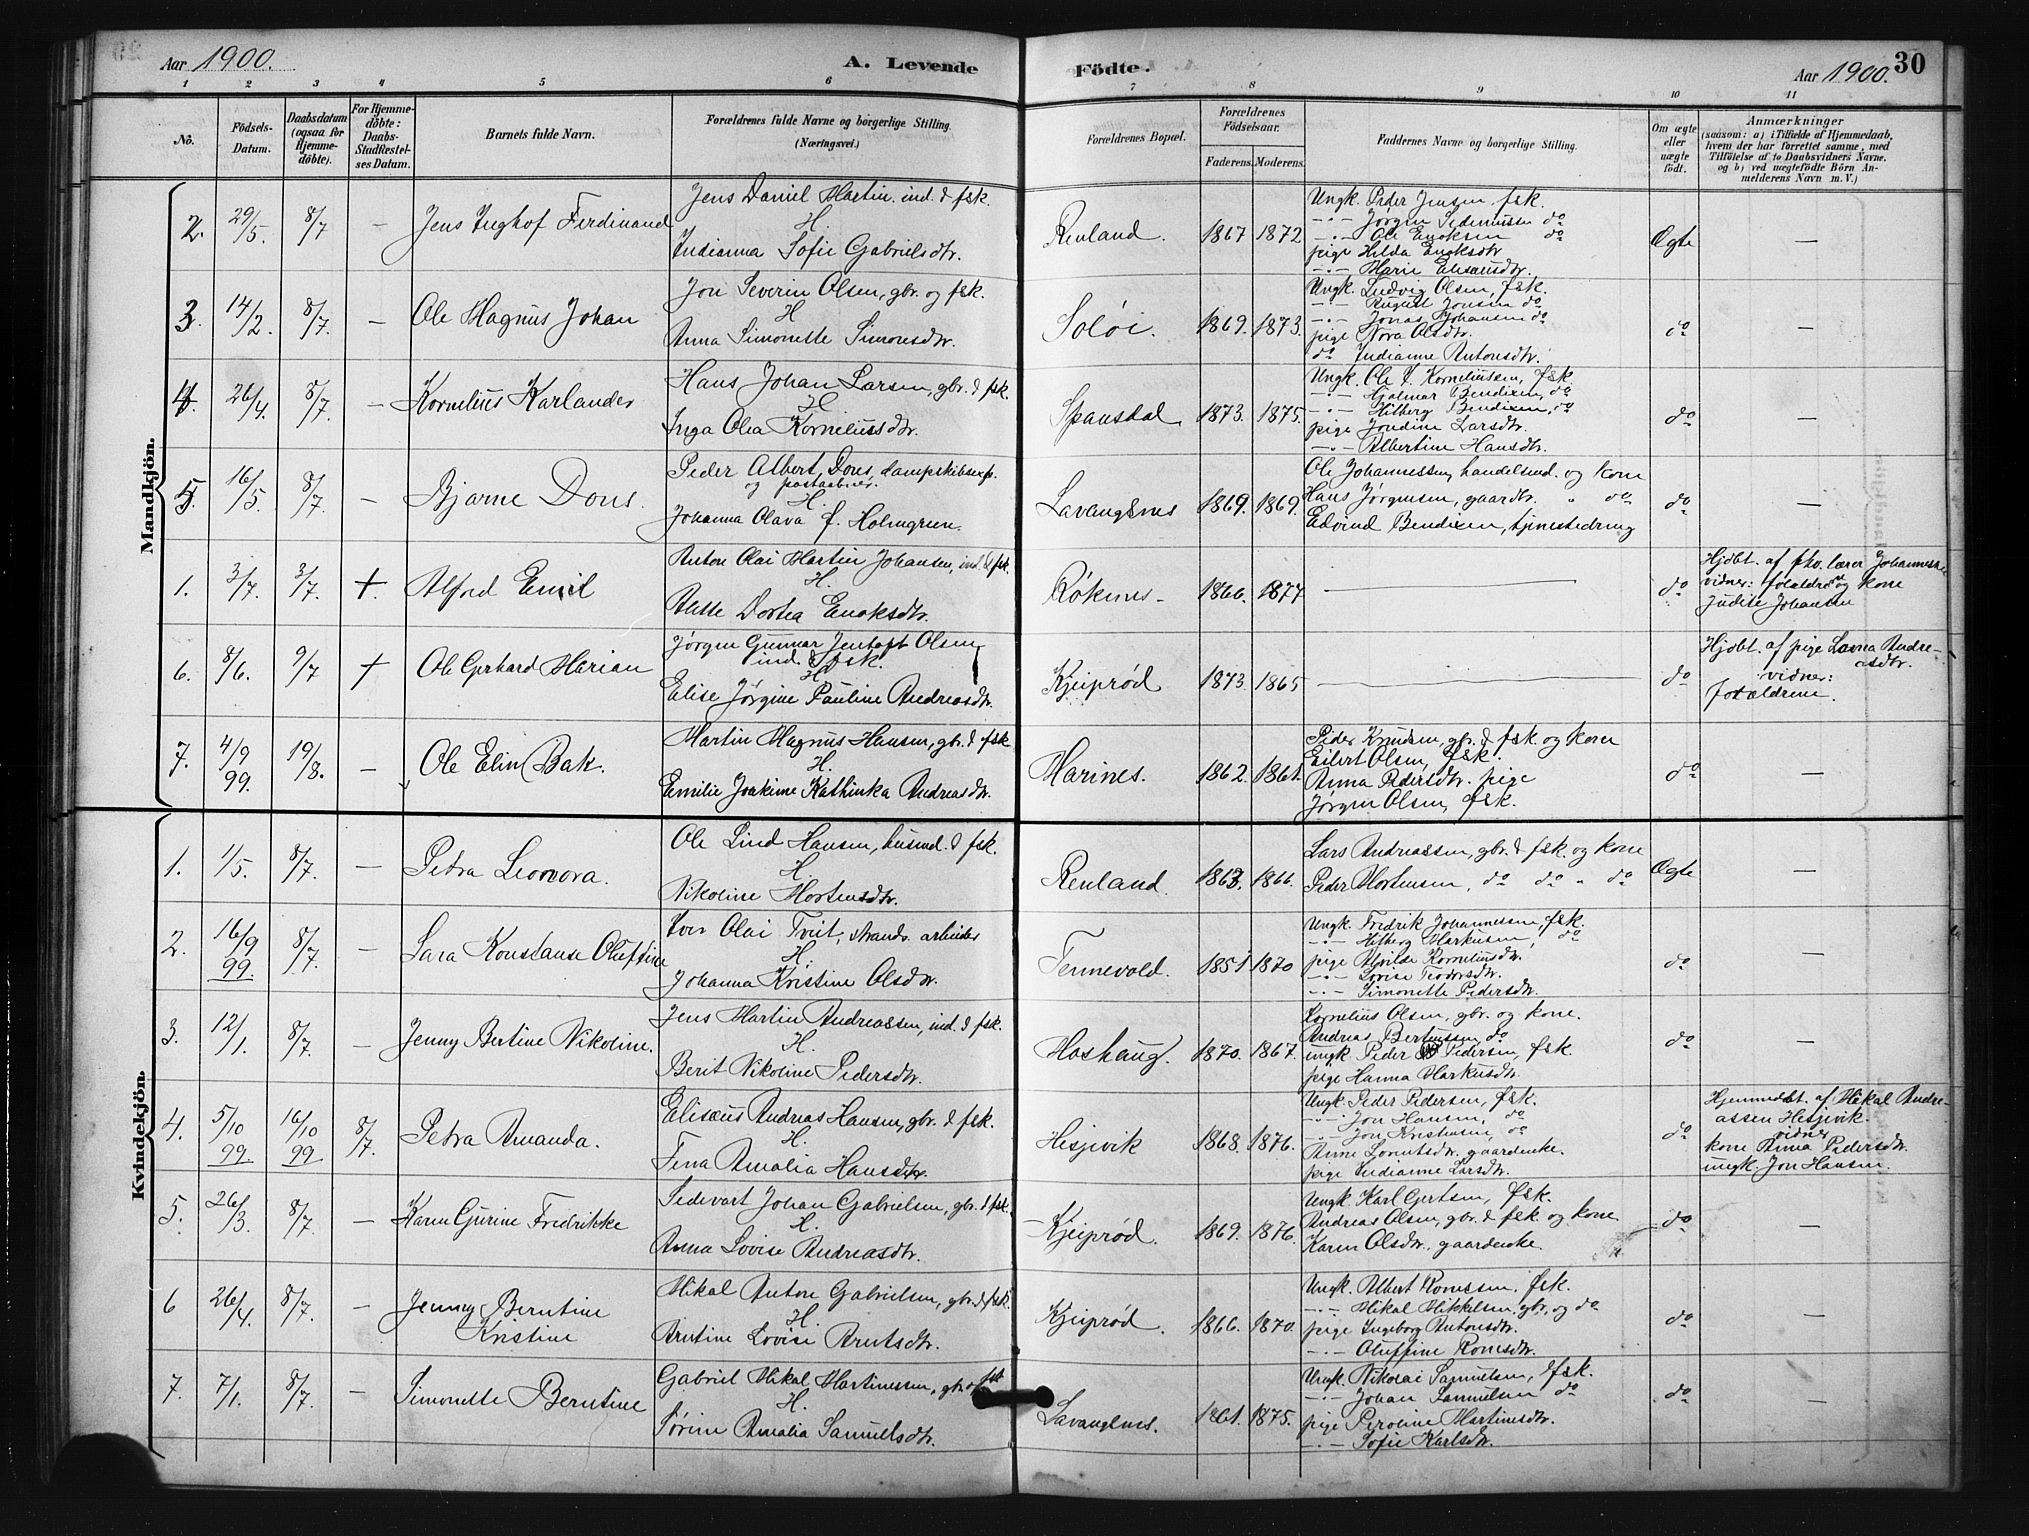 Aar 1900.
A. Levende
Födte.
Aar 1900.
30
1 2 3 4 5 6 7 8 9 10 11
No.
Födsels-Datum.
Daabsdatum (ogsaa for Hjemmedöbte).
For Hjemmedöbte: Daabs-Stadfæstelses Datum.
Barnets fulde Navn.
Forældrenes fulde Navne og borgerlige Stilling. (Næringsvei.)
Forældrenes Bopæl.
Forældrenes Födselsaar.
Faderens. Moderens.
Faddernes Navne og borgerlige Stilling.
Om ægte eller uægte födt.
Anmærkninger
(saasom: a) i Tilfælde af Hjemmedaab,
hvem der har forrettet samme, med
Tilföielse af to Daabsvidners Navne.
og b) ved uægtefödte Börn An-
melderens Navn m. V.)
Mandkjön.
2. 29/5. 8/7 — Jens Inghof Ferdinand
Jens Daniel Martin. ind. & fsk.
H.
Indianna Sofie Gabrielsdtr.
Renland. 1867 1872
Ungk. Peder Jensen fsk.
-"- Jørgen do
-"- Ole Enoksen do
pige Hilda Enoksdtr
-"- Marie Eliseusdtr.
Ægte —
3. 14/2. 8/7. — Ole Magnus Johan
Jon Severin Olsen, gbr. og fsk.
H
Anna Simonette Simonsdtr.
Soløi. 1869. 1873.
Ungk. Ludvig Olsen, fsk.
-"- August Jonsen do
-"- Jonas Johansen do
pige Nora Olsdtr.
do Indianne Antonsdtr.
do —
4. 26/4. 8/7. — Kornelius Karlander
Hans Johan Larsen, gbr. & fsk.
H
Inga Olea Korneliusdtr.
Spansdal 1873. 1875.
Ungk. Ole J. Korneliussen, fsk
-"- Hjalmar Bendixen, do
-"- Hilberg Bendixen, do
pige Jondine Larsdtr.
-"- Albertine Hansdtr.
do —
5. 16/5. 8/7. — Bjarne Dons.
Peder Albert Dons, dampskibsexp.
og postaabner.
H.
Johanna Olava f. Holmgreen.
Lavangsnes 1869. 1869.
Ole Johannessen, handelsmd. og kone
Hans Jørgensen, gaardbr. " do
Edvind Bendixen, tjenestedreng
do —
1. 3/7. 3/7. +. Alfred Emil
Anton Olai Martin Johansen, ind. & fsk.
H.
Dortea Enoksdtr.
Røkenes - 1866. 1877
do
Hjdbt. af fhv. lærer Johannessen
vidner: foraldre og kone
Judite Johansen
6. 8/6. 9/7 + Ole Gerhard Marian
Jørgen Gunnar Jentoft Olsen
ind. & fsk.
H
Elise Jørgine Pauline Andreasdtr.
Kjeiprød 1873. 1865
do
Hjdbt. af pige Lovna Andre-
asdtr.
vidner:
forældrene.
7. 4/9 99. 19/8. — Ole Elin Bak.
Martin Magnus Hansen, gbr. & fsk
H.
Emilie Joakime Kathinka Andreasdtr.
Marines. 1862. 1861.
Peder Knudsen, gbr. & fsk. og kone
Eilert Olsen, fsk.
Anna Pedersdtr. pige
Jørgen Olsen, fsk.
do —
Kvindekjön.
1. 1/5. 8/7. — Petra Leonora.
Ole Lind Hansen, husmd. & fsk.
H.
Nikoline Mortensdtr.
Renland. 1863. 1866.
Lars Andreassen, gbr. & fsk. og kone
Peder Mortensen, do do " do
Ægte —
2. 16/9 99. 8/7. — Sara Konstanse Oluffine
Iver Olai Tveit, strands. arbeider
H.
Johanna Kristine Olsdtr.
Tennevold. 1851 1870
Ungk. Fredrik Johannessen, fsk.
-"- Hilberg Markusen, do
pige Alvilde Korneliusdtr.
-"- Lovise Teodorsdtr.
-"- Simonette Pedersdtr.
do —
3. 12/1. 8/7. — Jenny Bertine Nikoline.
Jens Martin Andreassen, ind. & fsk.
H.
Berit Nikoline Pedersdtr.
Moshaug. 1870. 1867.
Kornelius Olsen, gbr. og kone.
Andreas Berteussen do
ungk. Peder Pedersen, fsk.
pige Hanna Markusdtr.
do —
4. 5/10 99. 16/10 99 8/7. Petra Amanda.
Eliseus Andreas Hansen, gbr. & fsk.
H.
Fina Amalia Hansdtr.
Hesjevik 1868. 1876.
Ungk. Peder Pedersen, fsk.
-"- Jon Hansen, do
-"- Jon Kristensen, do
Anne Lorentsdtr. gaardenke.
pige Indianne Larsdtr.
do
Hjemmedbt. af Mikal Andre-
assen Hesjevik.
vidner
kone Anna Pedersdtr.
ungk. Jon Hansen.
5. 26/3. 8/7. — Karen Gurine Fredrikke
Sedevart Johan Gabrielsen, gbr. & fsk.
H.
Anna Lovise Andreasdtr.
Kjeiprød. 1869. 1876.
Ungk. Karl Gertsen, fsk.
Andreas Olsen, gbr. & fsk og kone
Karen Olsdtr., gaardenke
do —
6 26/4. 8/7. — Jenny Berntine
Kristine
Mikal Anton Gabrielsen, gbr. & fsk.
H.
Arntine Lovise Arntsdtr.
Kjeiprød. 1866. 1870.
Ungk. Albert Ronessen, fsk.
-"- Mikal Mikkelsen, gbr. og do
pige Ingeborg Antonsdtr.
-"- Oluffine Ronesdtr.
do —
7. 7/1. 8/7. — Simonette Berntine
Gabriel Mikal Martinessen, gbr. og fsk
H.
Sørine Amalia Samuelsdtr.
Lavangsnes. 1861. 1875.
Ungk. Nikolai Samuelsen, fsk.
-"- Johan Samuelsen do
pige Peroline Martinesdtr.
-"- Sofie Karlsdtr.
do —